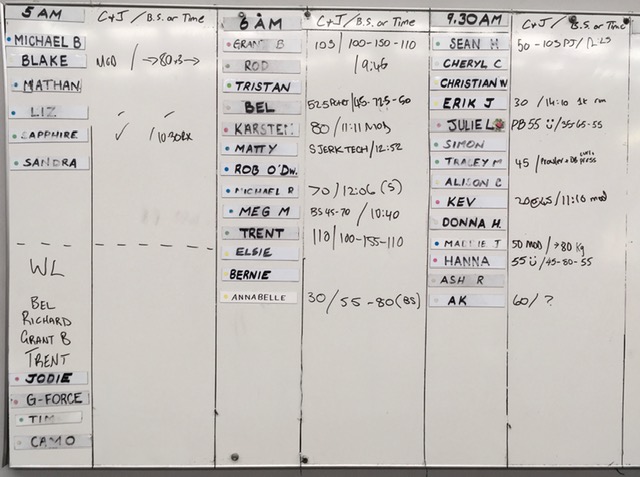 5 AM C+J / B.S. or Time
MICHAEL B
BLAKE MOD / →80
NATHAN
LIZ
SAPPHIRE ✓ /
SANDRA
WL
BEL
RICHARD
GRANT B
TRENT
JODIE
G-FORCE
TIM
CAMO
6 AM C+J / B.S. or Time
GRANT B 105 / 100-150-110
ROD / 9:46
TRISTAN
BEL
KARSTEN 80 / 11:11 MOD
MATTY S JERK TECH / 12:52
ROB O'DW.
MICHAEL R 70 / 12:06 (S)
MEG M BS 45-70 / 10:40
TRENT 110 / 100-155-110
ELSIE
BERNIE
ANNABELLE 30 / 55-80 (BS)
9.30 AM C+J / B.S. or Time
SEAN H
CHERYL C
CHRISTIAN W
ERIK J 30 / 14:10
JULIE L PB 55 ü / 35-65-55
SIMON
TRACEY M 45 / Prowler + DB press
ALISON C
KEV 20@65 / 11:10 mod
DONNA H.
50 MOD / →80 kg
HANNA 55 ü / 45-80-55
ASH R
AK 60 / ?